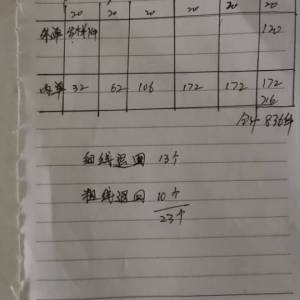 20 20 20 20 20 20
条单 120
内单 32 62 106 172 172 172
216
合计 836件
细线退回 13个
粗线退回 10个
23个